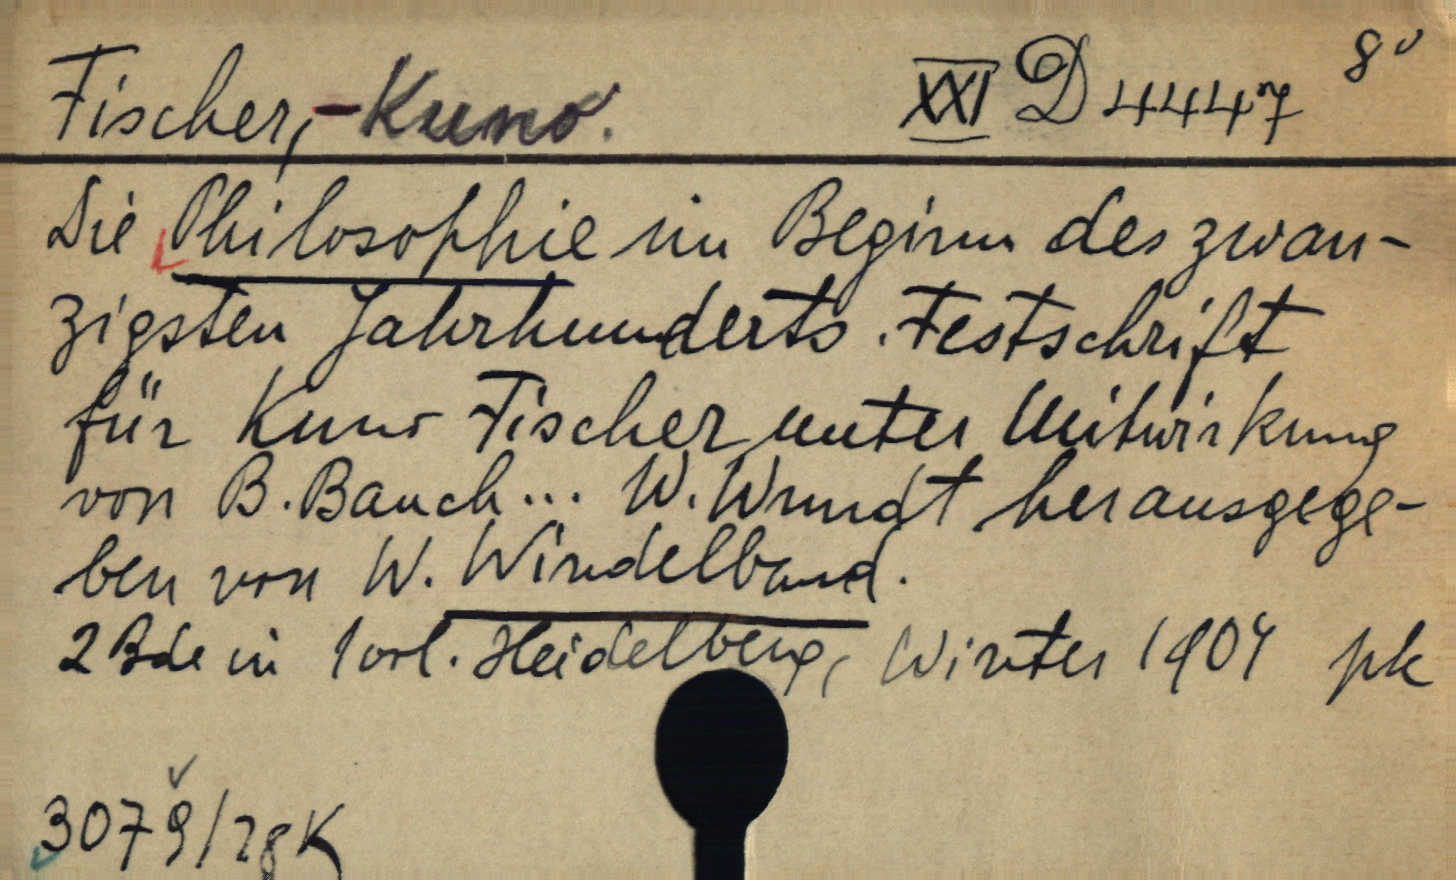 Fischer,-Kuno. XXI D 4447 8°
Die Philosophie im Beginn des zwan-
zigsten Jahrhunderts. Festschrift
für Kuno Fischer unter Mitwirkung
von B. Bauch... W. Wundt herausgege-
ben von W. Windelband.
2 Bde in 1 vol. Heidelberg, Winter 1904 pk
3079/28K